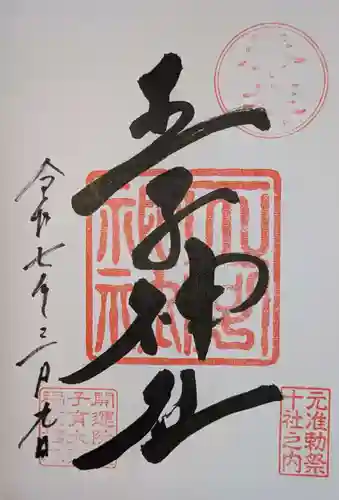 元准勅祭
十社之内
王子神社
開運除
子育大
令和七年三月九日